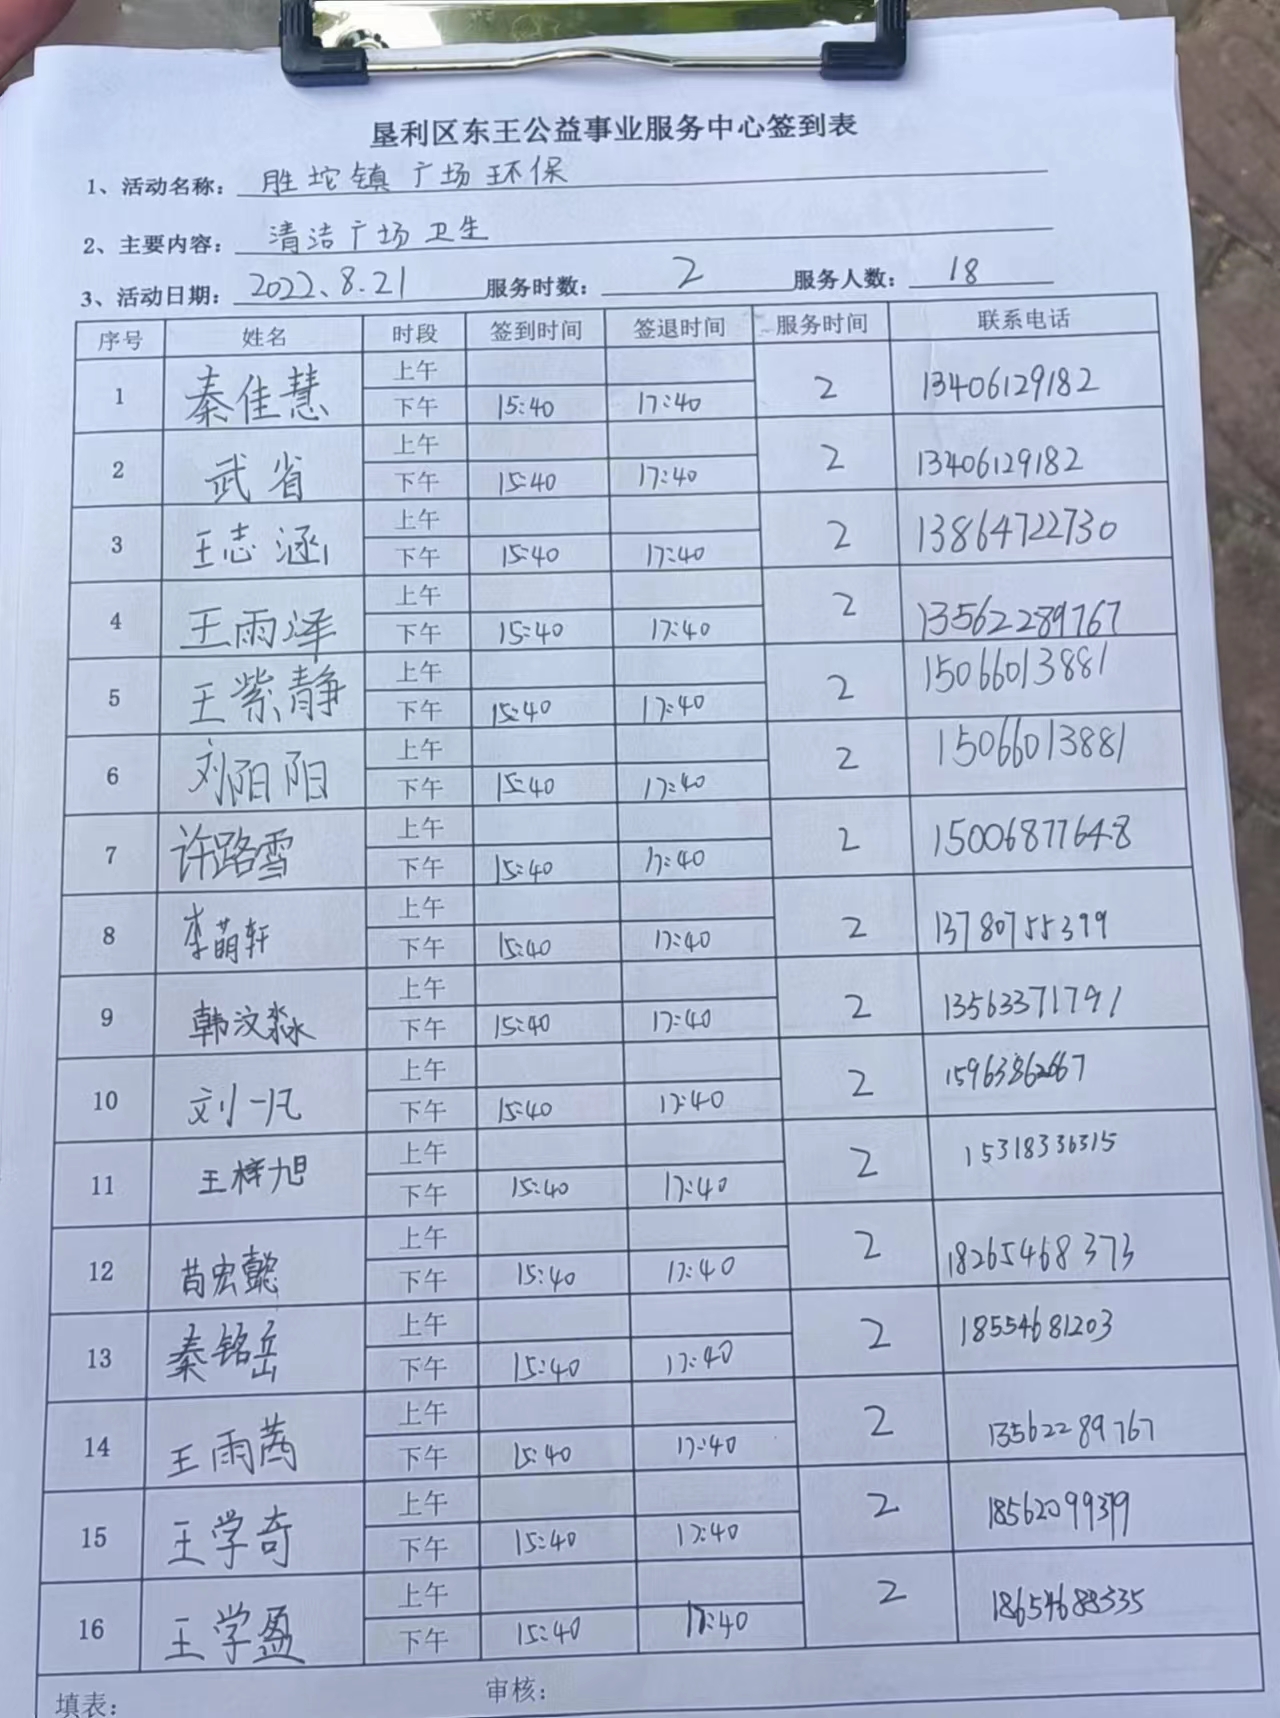 垦利区东王公益事业服务中心签到表
1、活动名称：胜坨镇广场环保
2、主要内容：清洁广场卫生
3、活动日期：2022、8.21 服务时数：2 服务人数：18
序号 姓名 时段 签到时间 签退时间 服务时间 联系电话
1 秦佳慧 上午 2 13406129182
下午 15:40 17:40
2 武省 上午 2 13406129182
下午 15:40 17:40
3 王志涵 上午 2 13864722730
下午 15:40 17:40
4 王雨泽 上午 2 13562289767
下午 15:40 17:40
5 王紫静 上午 2 15066013881
下午 15:40 17:40
6 刘阳阳 上午 2 15066013881
下午 15:40 17:40
7 许路雪 上午 2 15006877648
下午 15:40 17:40
8 李萌轩 上午 2 13780755399
下午 15:40 17:40
9 韩汶淼 上午 2 13563371791
下午 15:40 17:40
10 刘一凡 上午 2
下午 15:40 17:40
11 王梓旭 上午 2 15318336315
下午 15:40 17:40
12 苗宏懿 上午 2 18265468373
下午 15:40 17:40
13 秦铭岳 上午 2 18554681203
下午 15:40 17:40
14 王雨 上午 2 13562289767
下午 15:40 17:40
15 王学奇 上午 2
下午 15:40 17:40
16 王学盈 上午 2 18654688335
下午 15:40 17:40
填表： 审核：